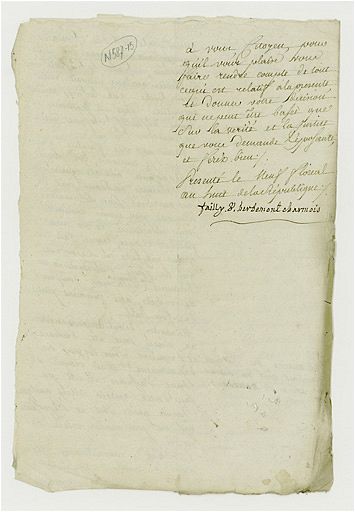 N587-15
à vous Citoyen, pour
qu'il vous plaise vous
faire rendre compte de tout
ce qui est relatif a la presente
et donner votre
qui ne peut être basé que
sur la verité et la justice
que vous demande l'exposante
et ferés bien.
Presenté le Neuf floréal
au huit de la Republique
failly. d'herbemont charmois